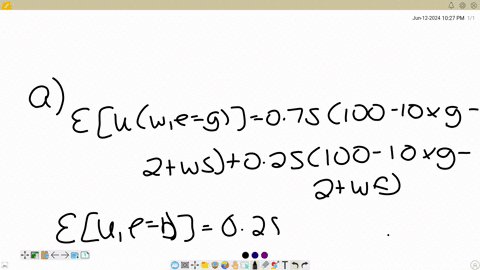 Jun-12-2024 10:27 PM 1/1
a)
E[u(w,e=g)]=0.75(100-10xg-
2+ws)+0.25(100-10xg-
2+ws)
E[u,e=b]=0.25